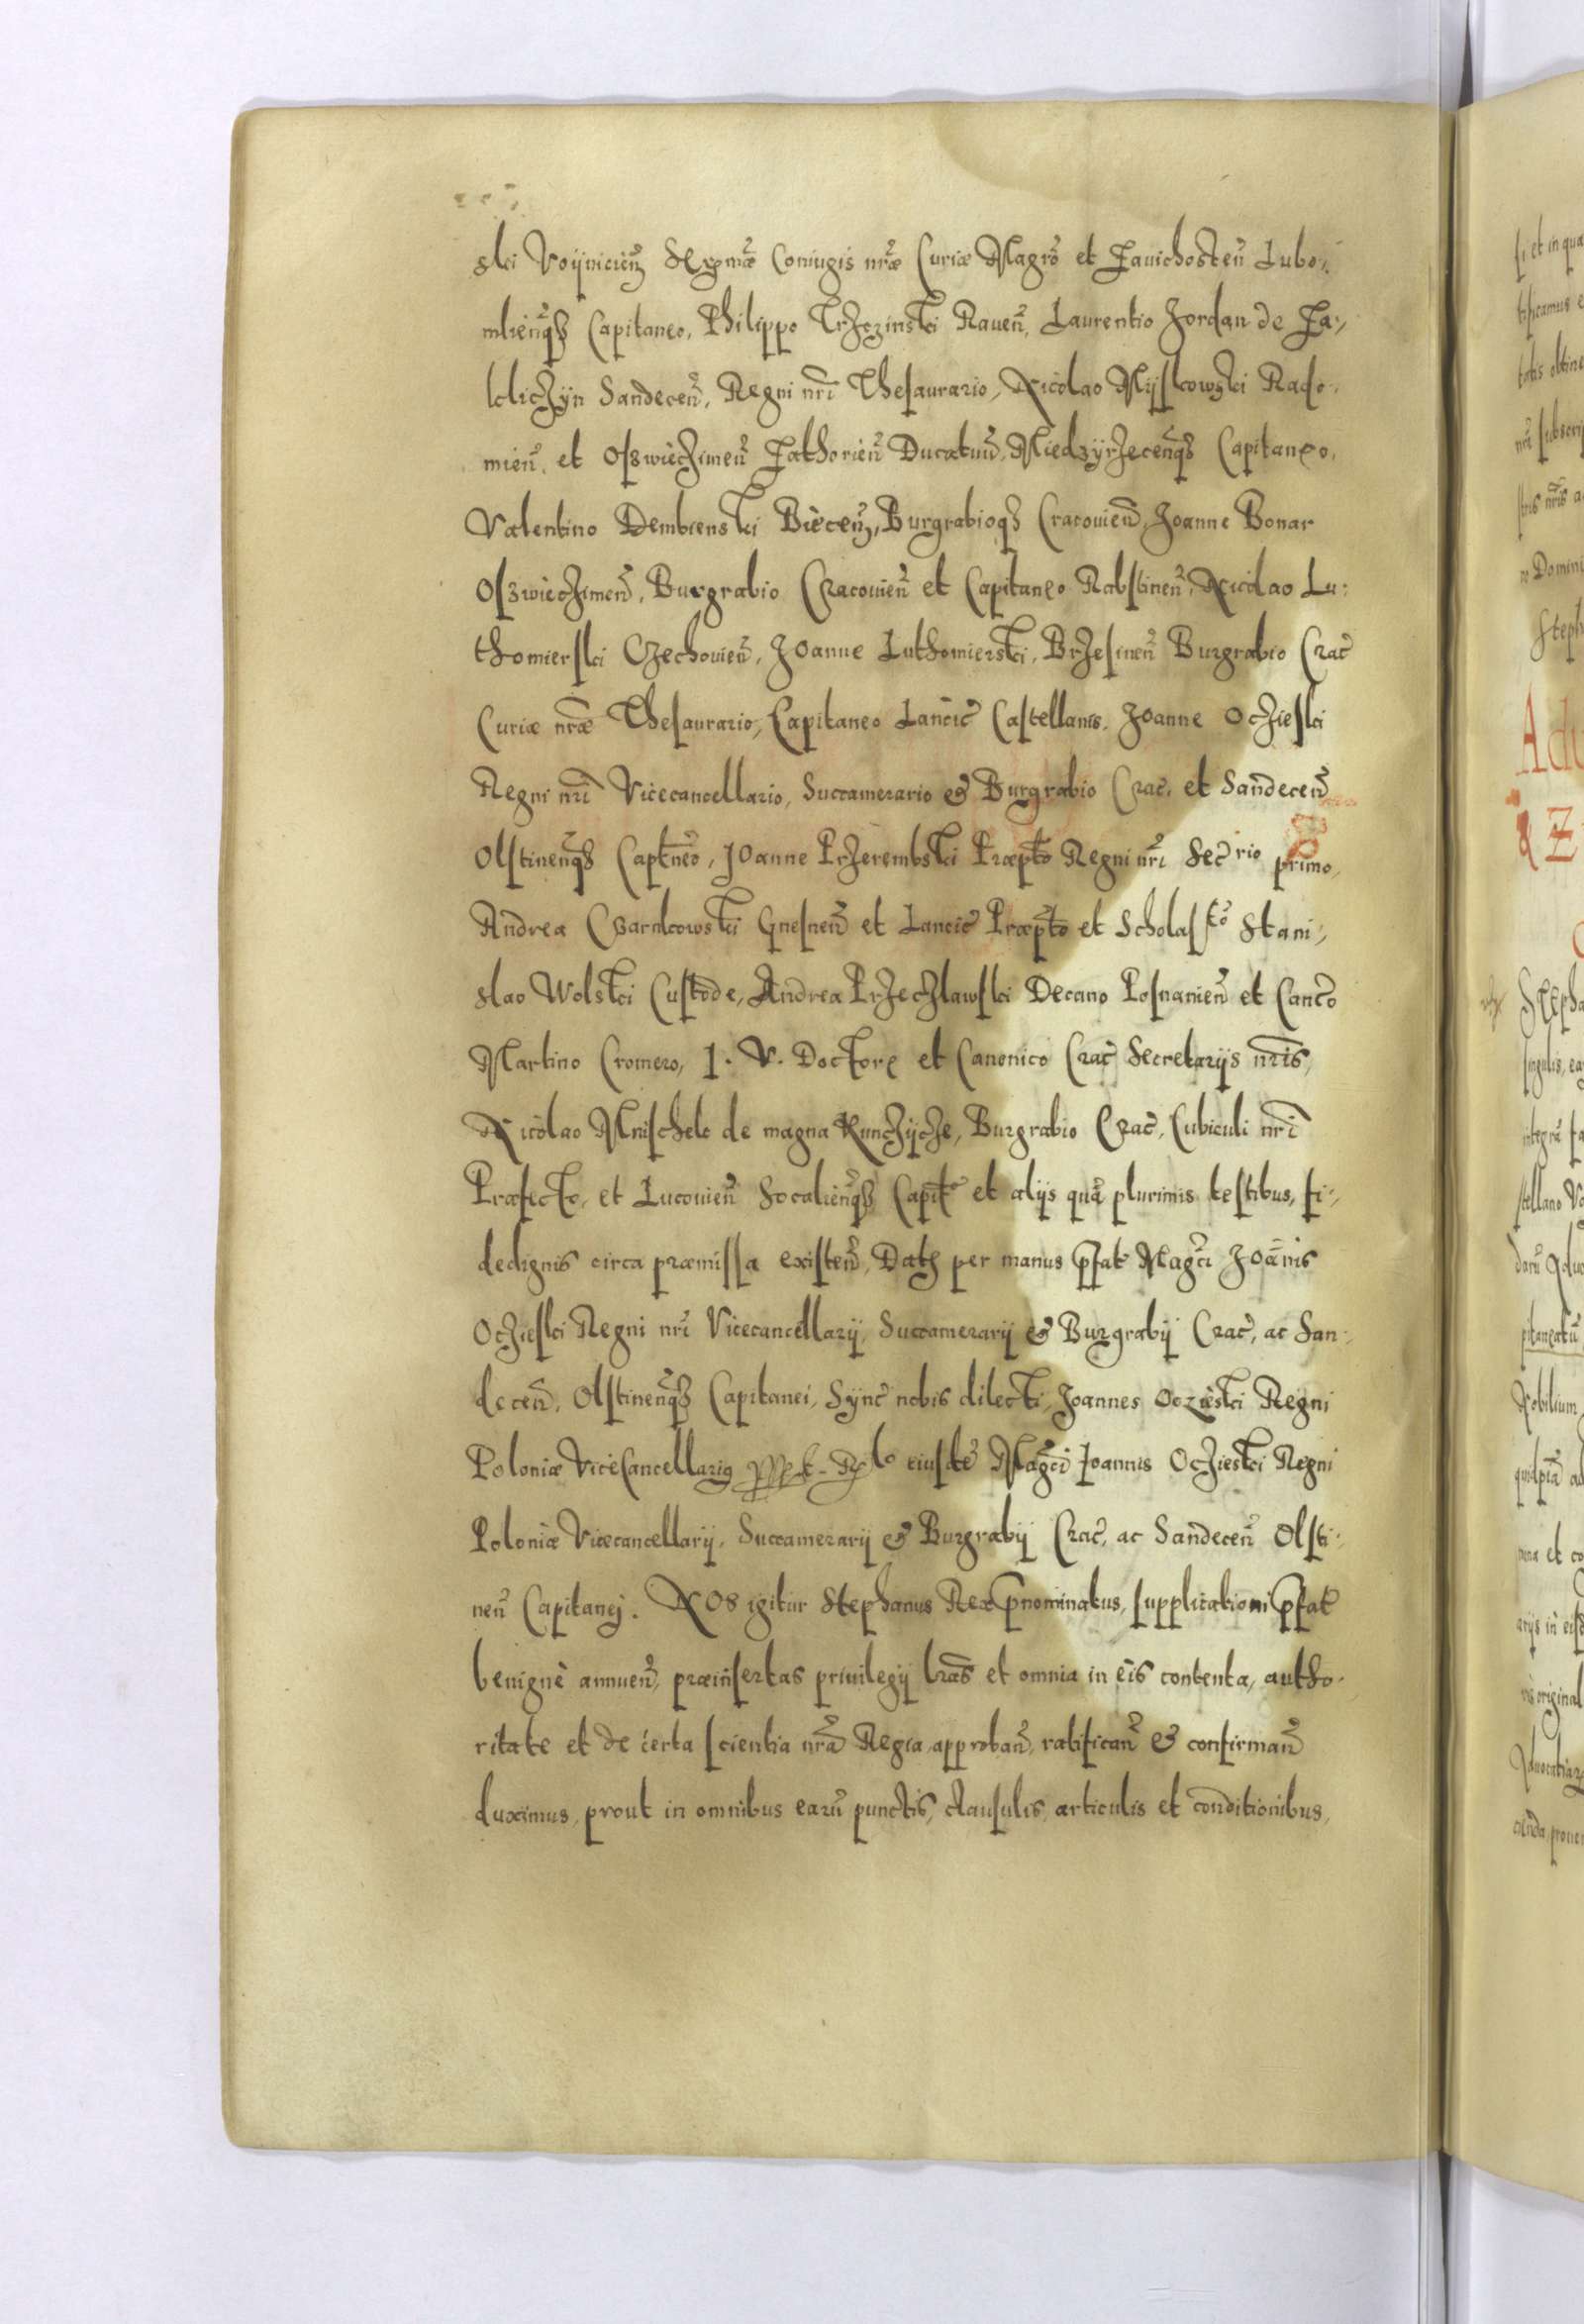 ski Voÿnicień Serpmæ Coniugis nræ Curiæ Magro et Zauichosteñ Lubo-
mlieñqȝ Capitaneo, Philippo Trzczinski Raueñ, Laurentio Jordan de Za-
kliczÿn Sandeceñ, Regni nri Thesaurario, Nicolao Mÿskowski Rado-
mieñ, et Oswieczimeñ Zathorieñ Ducatuũ, Miedzÿrzeceñqȝ Capitaneo,
Valentino Dembienski Bieceñ, Burgrabioqȝ Cracouieñ, Joanne Bonar
Oswieczimeñ, Burgrabio Cracouieñ et Capitaneo Rabstineñ, Nicolao Lu-
thomierski Czechouieñ, Joanne Luthomierski, Brzesineñ Burgrabio Crac
Curiæ nræ Thesaurario, Capitaneo Lancic Castellanis. Joanne Oczieski
Regni nri Vicecancellario, Succamerario & Burgrabio Crac, et Sandeceñ
Olstineñqȝ Captneo, Joanne Przerembski Præpto Regni nri Secrio primo,
Andrea Czarnkowski Gnesneñ et Lancic Præpto et Scholasto Stani-
slao Wolski Custode, Andrea Przeczlawski Decano Posnanieñ et Canco
Martino Cromero, J. V. Doctore et Canonico Crac Secretarÿs nris,
Nicolao Mnischek de magna Kunczÿcze, Burgrabio Crac, Cubiculi nri
Præfecto, et Lucouieñ Socalieñqȝ Capit et alÿs quã plurimis testibus, fi-
dedignis circa præmissa existeñ, Datȝ per manus pfat Magci Joãnis
Oczieski Regni nri Vicecancellarÿ, Succamerarÿ & Burgrabÿ Crac, ac San-
deceñ, Olstineñqȝ Capitanei, Sÿnc nobis dilecti, Joannes Oczieski Regni
Poloniæ ViceCancellarig eiusdẽ Magci Joannis Oczieski Regni
Poloniæ Vicecancellarÿ, Succamerarÿ & Burgrabÿ Crac, ac Sandeceñ Olsti-
neñ Capitanej. NOS igitur Stephanus Rex pnominatus, supplicationi pfat
benignè annueñ, præinsertas priuilegÿ lras et omnia in eis contenta, autho-
ritate et de certa scientia nrã Regia approbañ, ratificañ & confirmañ
duximus, prout in omnibus earũ punctis, clausulis, articulis et conditionibus,